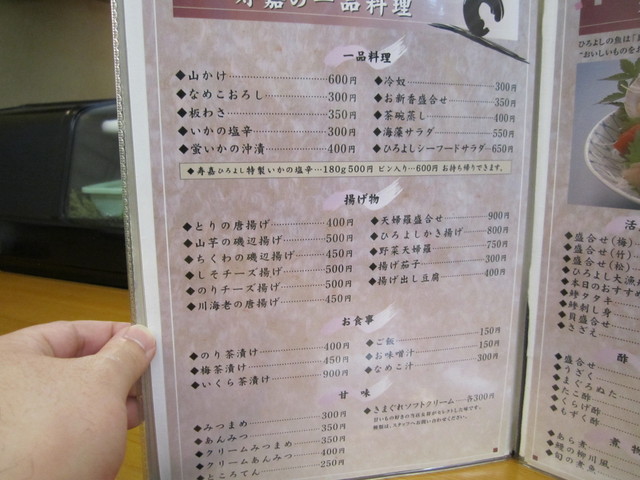 寿嘉の一品料理
一品料理
◆山かけ 600円
◆なめこおろし 300円
◆板わさ 350円
◆いかの塩辛 300円
◆蛍いかの沖漬 400円
◆冷奴 300円
◆お新香盛合せ 350円
◆茶碗蒸し 400円
◆海藻サラダ 550円
◆ひろよしシーフードサラダ 650円
◆寿嘉ひろよし特製いかの塩辛…180g500円 ビン入り…600円 お持ち帰りできます。
揚げ物
◆とりの唐揚げ 400円
◆山芋の磯辺揚げ 500円
◆ちくわの磯辺揚げ 450円
◆しそチーズ揚げ 500円
◆のりチーズ揚げ 500円
◆川海老の唐揚げ 450円
◆天婦羅盛合せ 900円
◆ひろよしかき揚げ 800円
◆野菜天婦羅 750円
◆揚げ茄子 300円
◆揚げ出し豆腐 400円
お食事
◆のり茶漬け 400円
◆梅茶漬け 450円
◆いくら茶漬け 900円
◆ご飯 150円
◆お味噌汁 150円
◆なめこ汁 300円
甘味
◆みつまめ 300円
◆あんみつ 350円
◆クリームみつまめ 350円
◆クリームあんみつ 400円
◆ところてん 250円
◆きまぐれソフトクリーム 各300円
ひろよしの魚は
"おいしいものを
◆盛合せ(梅)
◆盛合せ(竹)
◆盛合せ(松)
◆ひろよし大漁
◆本日のおすすめ
◆鰹タタキ
◆鰹刺し身
◆貝盛合せ
◆さざえ
酢
◆盛合せ
◆うざく
◆まぐろぬた
◆たこ酢
◆くらげ酢
◆もずく酢
煮物
◆あら煮
◆鰻の柳川風
◆旬の煮魚